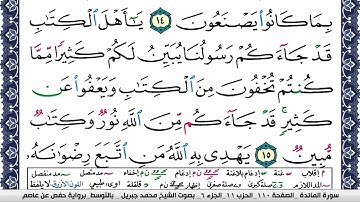 بِمَا كَانُوا۟ يَصْنَعُونَ ١٤ يَـٰٓأَهْلَ ٱلْكِتَـٰبِ
قَدْ جَآءَكُمْ رَسُولُنَا يُبَيِّنُ لَكُمْ كَثِيرًا مِّمَّا
كُنتُمْ تُخْفُونَ مِنَ ٱلْكِتَـٰبِ وَيَعْفُوا۟ عَن
كَثِيرٍ ۚ قَدْ جَآءَكُم مِّنَ ٱللَّهِ نُورٌ وَكِتَـٰبٌ
مُّبِينٌ ١٥ يَهْدِى بِهِ ٱللَّهُ مَنِ ٱتَّبَعَ رِضْوَٰنَهُۥ
سورة المائدة . الصفحة ١١٠ . الحزب ١١ . الجزء ٦ . بصوت الشيخ محمد جبريل . بالتوسط . برواية حفص عن عاصم